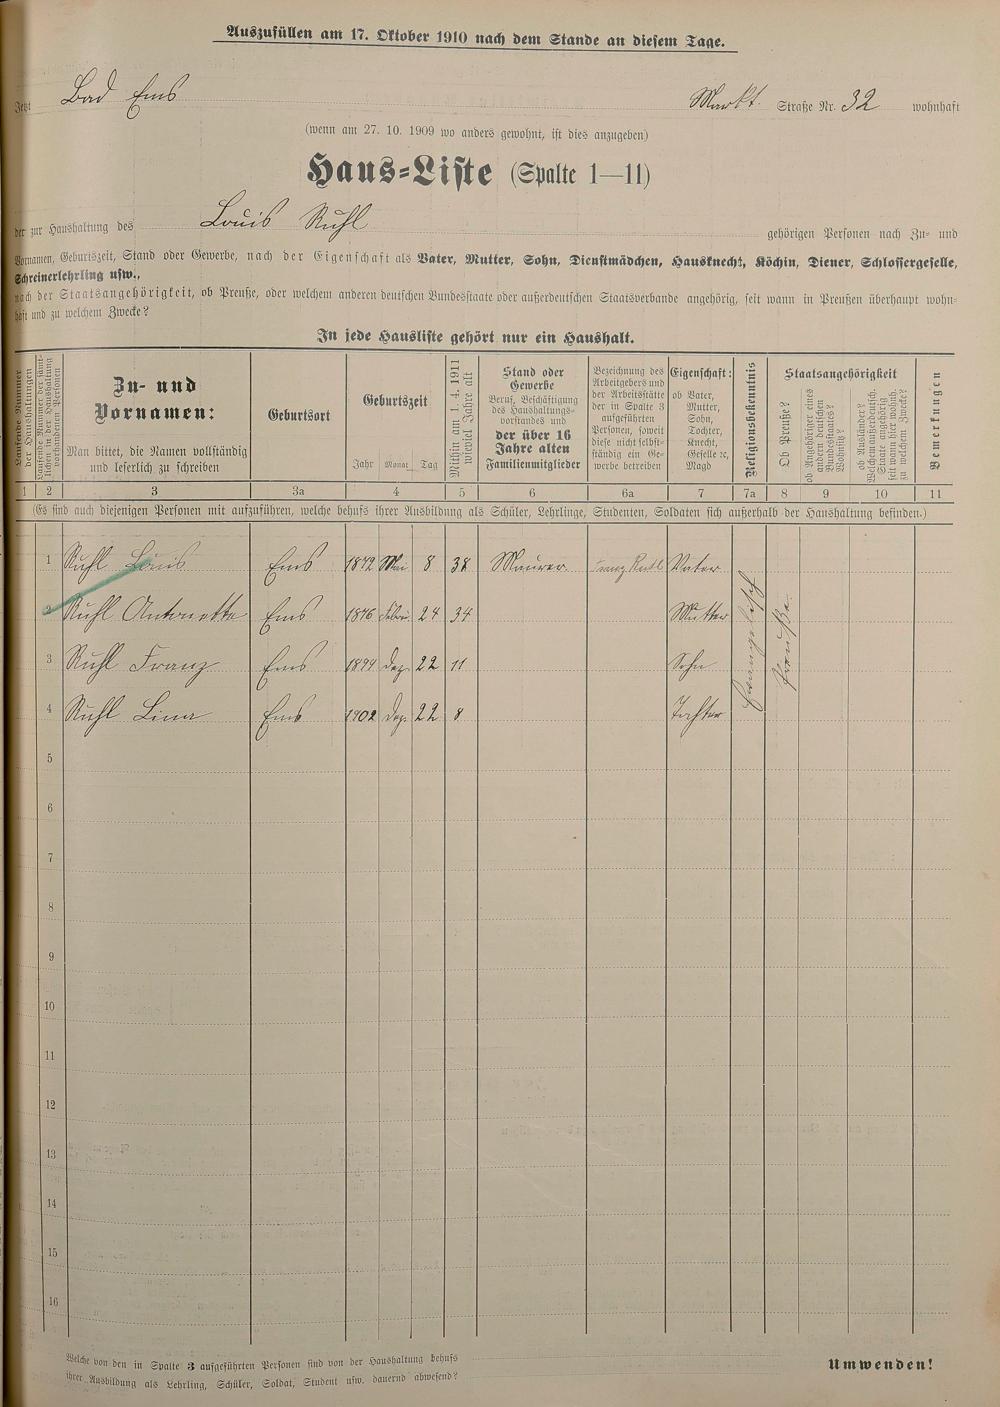 Auszufüllen am 17. Oktober 1910 nach dem Stande an diesem Tage.
Jetzt Bad Ems Markt Straße Nr. 32 wohnhaft
(wenn am 27. 10. 1909 wo anders gewohnt, ist dies anzugeben)
Haus-Liste (Spalte 1—11)
der zur Haushaltung des Louis Ruhl gehörigen Personen nach Zu- und
Vornamen, Geburtszeit, Stand oder Gewerbe, nach der Eigenschaft als Vater, Mutter, Sohn, Dienstmädchen, Hausknecht, Köchin, Diener, Schlossergeselle,
Schreinerlehrling usw.,
nach der Staatsangehörigkeit, ob Preuße, oder welchem anderen deutschen Bundesstaate oder außerdeutschen Staatsverbande angehörig, seit wann in Preußen überhaupt wohn-
haft und zu welchem Zwecke?
In jede Hausliste gehört nur ein Haushalt.
Laufende Nummer
der Haushaltungen
Laufende Nummer der sämt-
lichen in der Haushaltung
vorhandenen Personen
Zu- und
Vornamen:
Man bittet, die Namen vollständig
und leserlich zu schreiben
Geburtsort
Geburtszeit
Jahr Monat Tag
Mithin am 1. 4. 1911
wieviel Jahre alt
Stand oder
Gewerbe
Beruf, Beschäftigung
des Haushaltungs-
vorstandes und
der über 16
Jahre alten
Familienmitglieder
Bezeichnung des
Arbeitgebers und
der Arbeitsstätte
der in Spalte 3
aufgeführten
Personen, soweit
diese nicht selbst-
ständig ein Ge-
werbe betreiben
Eigenschaft:
ob Vater,
Mutter,
Sohn,
Tochter,
Knecht,
Geselle ec,
Magd
Religionsbekenntnis
Staatsangehörigkeit
Ob Preuße?
ob Angehöriger eines
andern deutschen
Bundesstaates?
Wohnsitz?
ob Ausländer?
Welchem außerdeutsch.
Staate angehörig
seit wann hier wohnh.
zu welchem Zwecke?
Bemerkungen
1 2 3 3a 4 5 6 6a 7 7a 8 9 10 11
(Es sind auch diejenigen Personen mit aufzuführen, welche behufs ihrer Ausbildung als Schüler, Lehrlinge, Studenten, Soldaten sich außerhalb der Haushaltung befinden.)
1 Ruhl Louis Ems 1872 Mai 8 38 Maurer Vater
2 Ruhl Antonette Ems 1876 24 34 Mutter
3 Ruhl Franz Ems 1899 Dez. 22 11 Sohn
4 Ruhl Lina Ems 1902 Dez. 22 8 Tochter
Evangelisch
Preuße
5
6
7
8
9
10
11
12
13
14
15
16
Welche von den in Spalte 3 aufgeführten Personen sind von der Haushaltung behufs
ihrer Ausbildung als Lehrling, Schüler, Soldat, Student usw. dauernd abwesend?
Umwenden!